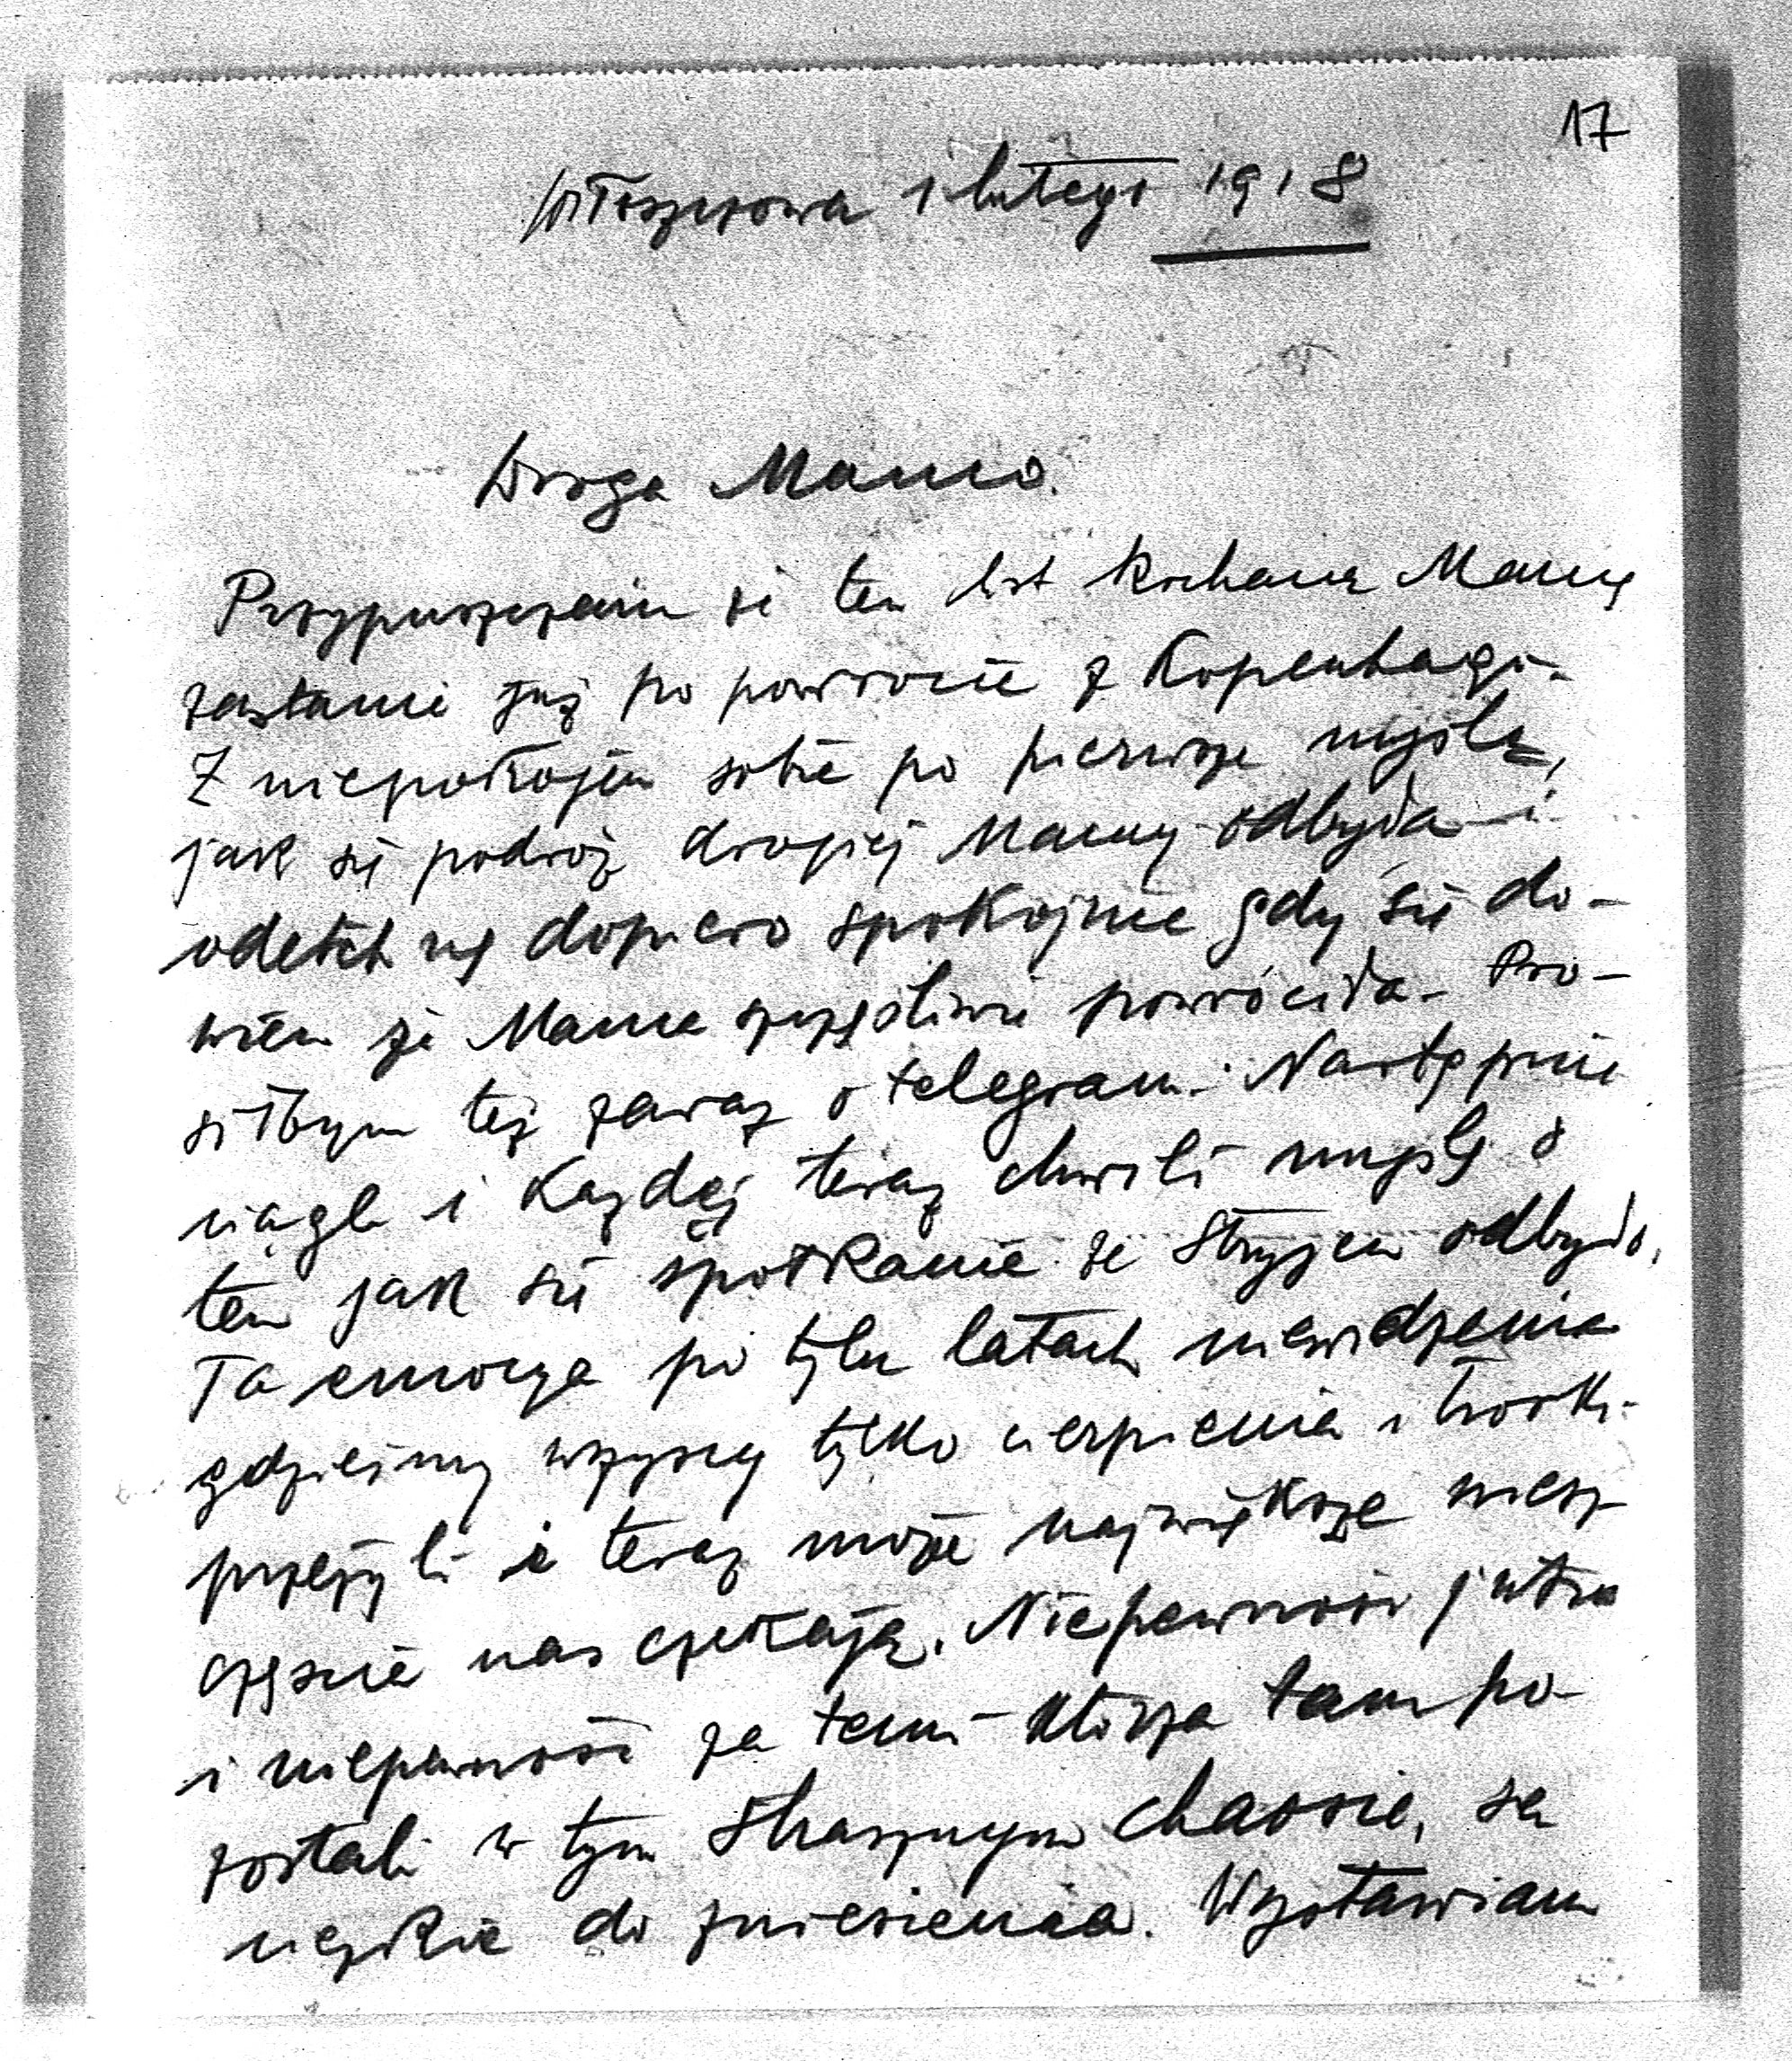 17
Włoszczowa 1 lutego 1918
Droga Mamo.
Przypuszczam że ten list kochaną Mamę
zastanie już po powrocie z Kopenhagi-
Z niepokojem sobie po pierwsze myślę,
jak się podróż drogiej Mamy odbyła i
odetchnę dopiero spokojnie gdy się do-
wiem że Mama szczęśliwie powróciła- Pro-
siłbym też zaraz o telegram. Następnie
ciągle i każdej teraz chwili myślę o
tem jak się spotkanie ze Stryjem odbyło.
Ta emocya po tylu latach niewidzenia
gdzieśmy wszyscy tylko cierpienia i troski
przeżyli i teraz może największe niesz-
częście nas czekają. Niepewność jutra
i niepewność za temi którzy tam po-
zostali w tym strasznym chaosie, są
ciężkie do zniesienia. Wystawiam